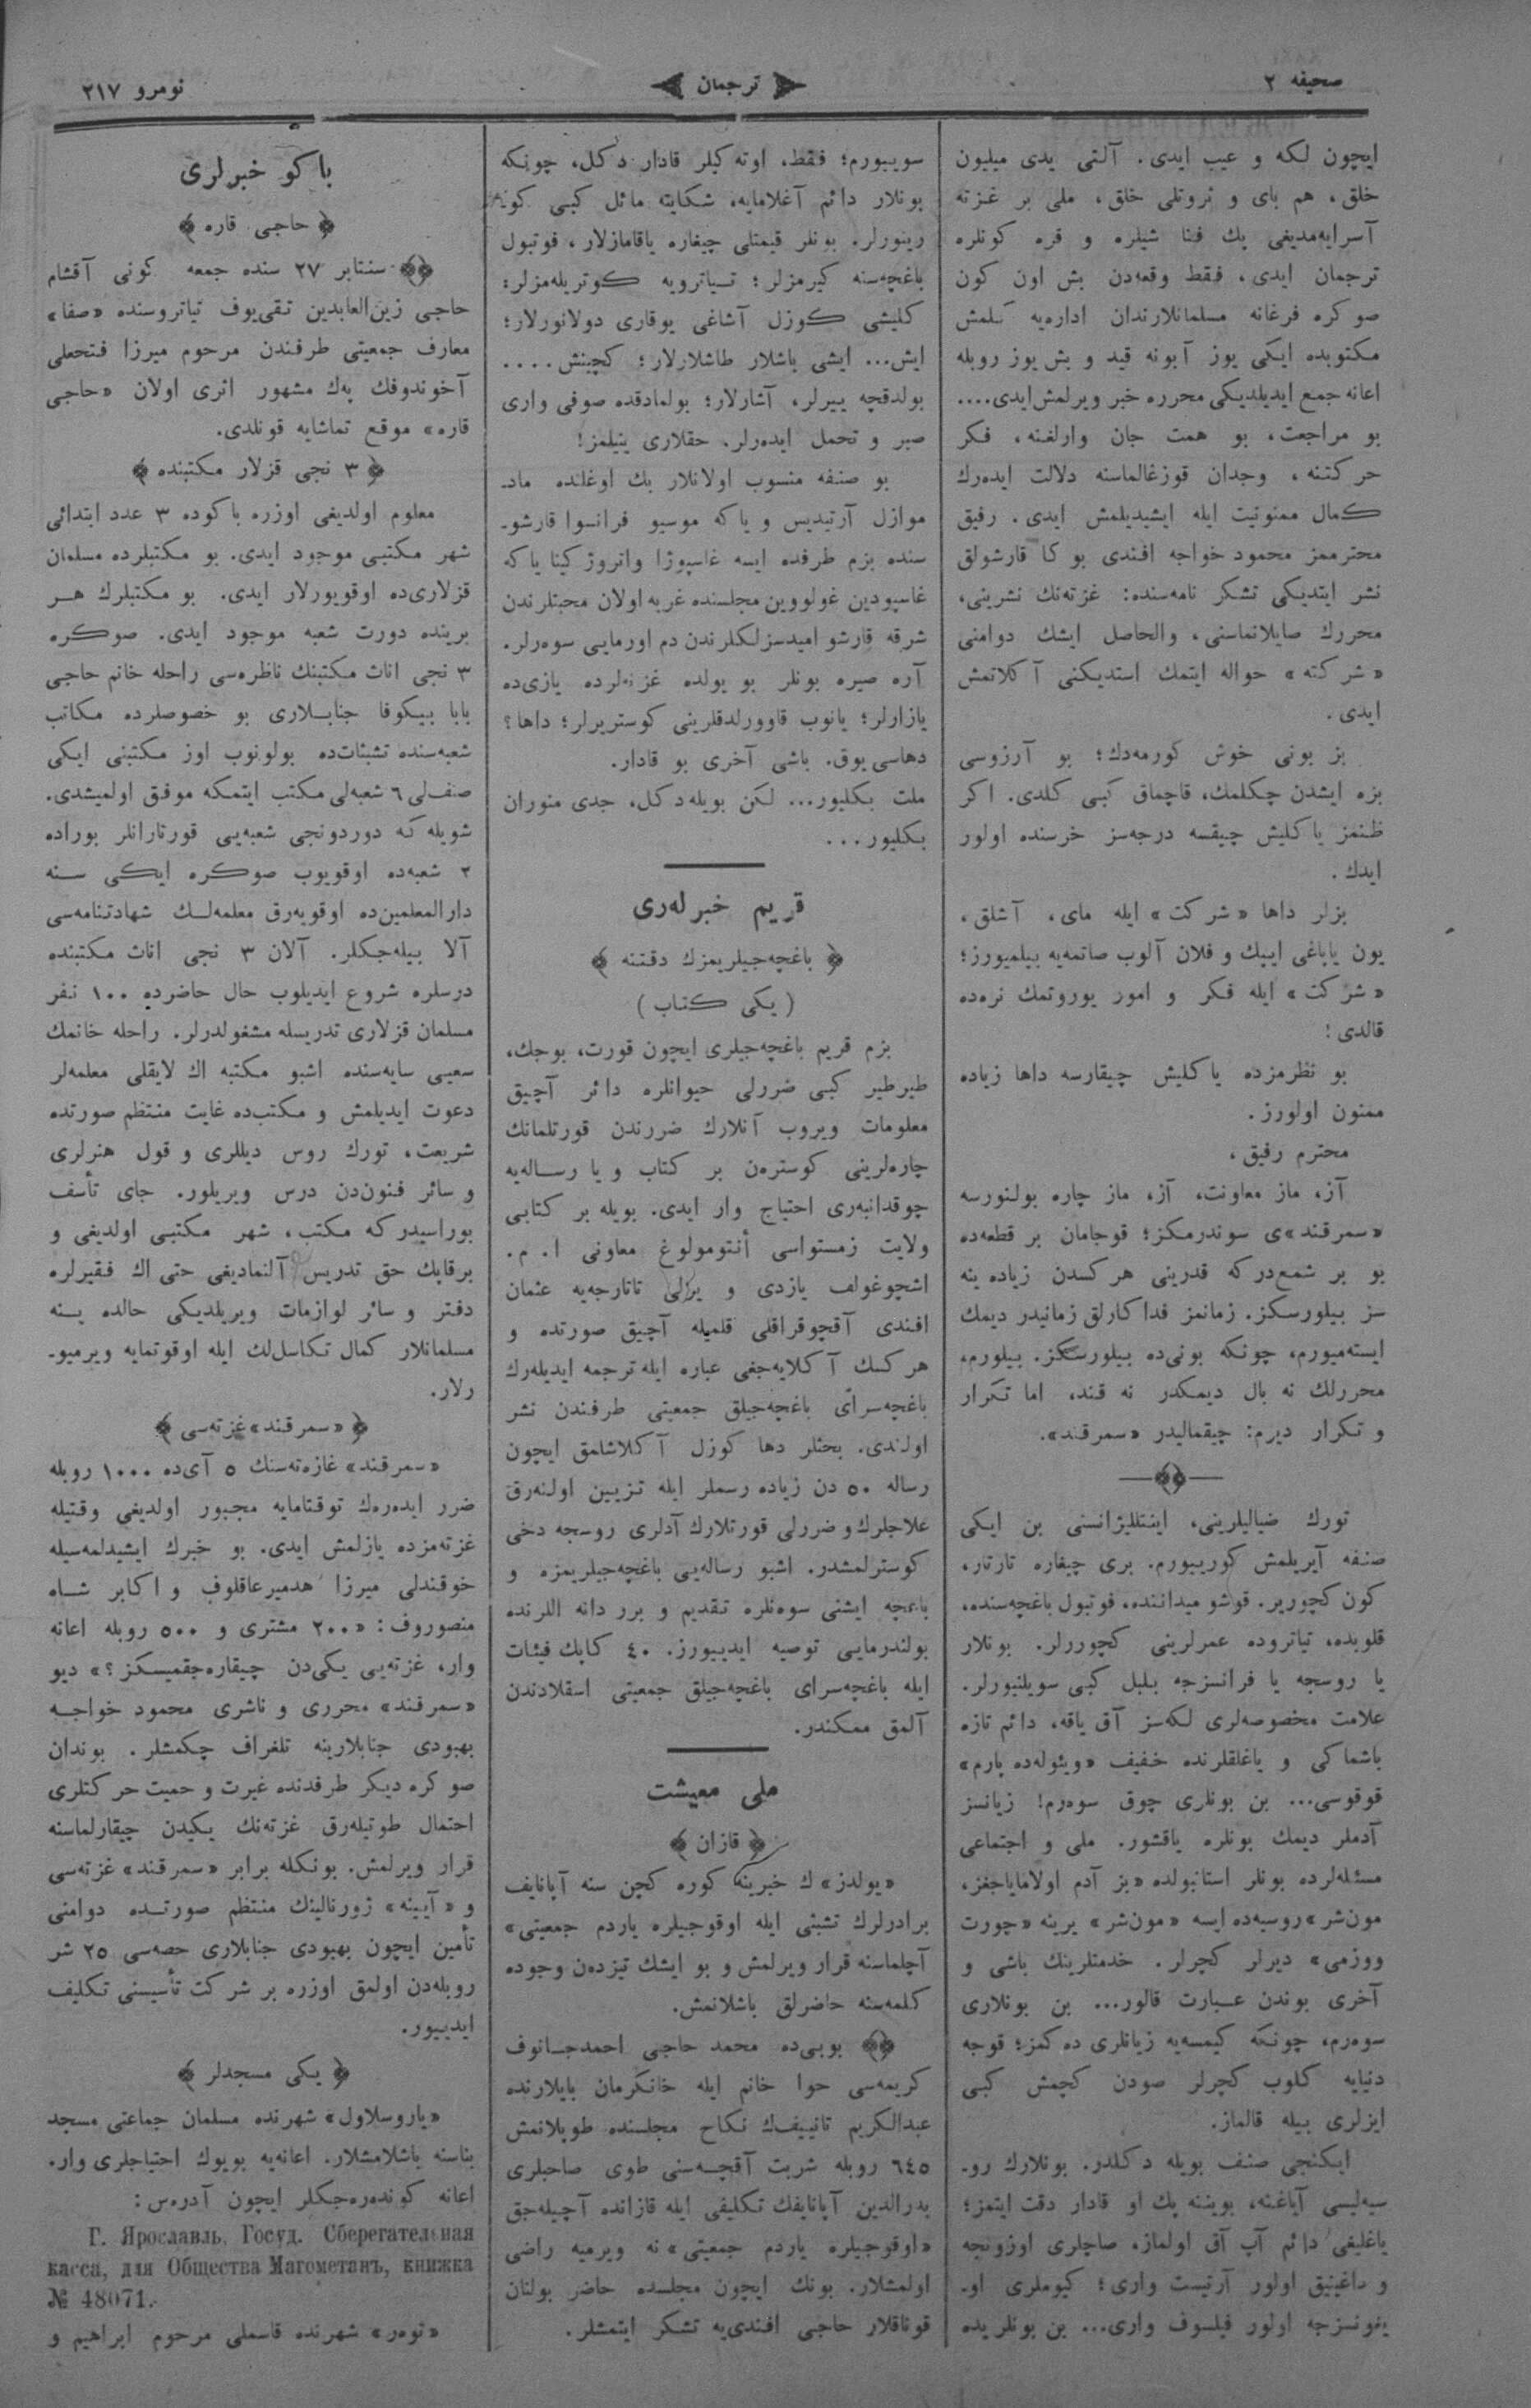 صحیفه ٢
ترجمان
نومرو ٢١٧
ایچون لکه و عیب ایدی. آلتی یدی میلیون
خلق، هم بای و ثروتلی خلق، ملی بر غزته
آسرایه‌مدیغی پك فنا شیلره و قره کونلره
ترجمان ایدی. فقط وقعه‌دن بش اون کون
صوکره فرغانه مسلمانلارندان اداره‌یه کلمش
مکتوبده ایکی یوز آبونه قید و بش یوز روبله
اعانه جمع ایدیلدیکی محرره خبر ویرلمش‌ایدی....
بو مراجعت، بو همت جان وارلغنه، فکر
حرکتنه، وجدان قوزغالماسنه دلالت ایده‌رك
کمال ممنونیت ایله ایشیدیلمش ایدی. رفیق
محترممز محمود خواجه افندی بوکا قارشولق
نشر ایتدیکی تشکر نامه‌سنده: غزته‌نك نشرینی،
محررك صایلانماسنی، والحاصل ایشك دوامنی
«شرکته» حواله ایتمك استدیکنی آکلاتمش
ایدی.
بز بونی خوش کورمه‌دك؛ بو آرزوسی
بزه ایشدن چکلمك، قاچماق کبی کلدی. اکر
ظنمز یاکلیش چیقسه درجه‌سز خرسنده اولور
ایدك.
بزلر داها «شرکت» ایله مای، آشلق،
یون یاباغی ایپك و فلان آلوب صاتمه‌یه بیلمیورز؛
«شرکت» ایله فکر و امور یوروتمك نره‌ده
قالدی!
بو نظرمزده یاکلیش چیقارسه داها زیاده
ممنون اولورز.
محترم رفیق،
آز، ماز معاونت، آز، ماز چاره بولنورسه
«سمرقند»ی سوندرمکز؛ قوجامان بر قطعه‌ده
بو بر شمع‌درکه قدرینی هر کسدن زیاده ینه
سز بیلورسکز. زمانمز فداکارلق زمانیدر دیمك
ایسته‌میورم، چونکه بونی‌ده بیلورسکز. بیلورم،
محررلك نه بال دیمکدر نه قند، اما تکرار
و تکرار دیرم: چیقمالیدر «سمرقند».
تورك ضیالیلرینی، اینتللیژانسنی بن ایکی
صنفه آیریلمش کورییورم. بری چیغاره تارتار،
کون کچوریر. قوشو میداننده، فوتبول باغچه‌سنده،
قلوبده، تیاتروده عمرلرینی کچوررلر. بونلار
یا روسجه یا فرانسزجه بلبل کبی سویلنیورلر.
علامت مخصوصه‌لری لکه‌سز آق یاقه، دائم تازه
باشماکی و یاغلقلرنده خفیف «ویئوله‌ده پارم»
قوقوسی... بن بونلری چوق سوه‌رم! زیانسز
آدملر دیمك بونلره یاقشور. ملی و اجتماعی
مسئله‌لرده بونلر استانبولده «بز آدم اولامایاجغز،
مون‌شر» روسیه‌ده ایسه «مون‌شر» یرینه «چورت
ووزمی» دیرلر کچرلر. خدمتلرینك باشی و
آخری بوندن عبارت قالور... بن بونلاری
سوه‌رم، چونکه کیمسه‌یه زیانلری ده‌کمز؛ قوجه
دنیایه کلوب کچرلر صودن کچمش کبی
ایزلری بیله قالماز.
ایکنجی صنف بویله دکلدر. بونلارك رو-
سیه‌لیسی آیاغنه، بویننه پك او قادار دقت ایتمز؛
یاغلیغی دائم آپ آق اولماز، صاچلری اوزونجه
و داغینیق اولور آرتیست واری؛ کیوملری او-
یغونسزجه اولور فیلسوف واری... بن بونلریده
سوییورم؛ فقط، اوته‌کیلر قادار دکل، چونکه
بونلار دائم آغلامایه، شکایته مائل کبی کونه
رینورلر. بونلر قیمتلی چیغاره یاقامازلار، فوتبول
باغچه‌سنه کیرمزلر؛ تیاترویه کوتریله‌مزلر:
کلیشی کوزل آشاغی یوقاری دولانورلار؛
ایش... ایشی باشلار طاشلارلار؛ کچینش....
بولدقچه ییرلر، آشارلار؛ بولمادقده صوفی واری
صبر و تحمل ایده‌رلر. حقلاری یتیلمز!
بو صنفه منسوب اولانلار بك اوغلنده ماد-
موازل آرتیدیس و یاکه موسیو فرانسوا قارشو-
سنده بزم طرفده ایسه غاسپوژا وانروژکینا یاکه
غاسپودین غولووین مجلسنده غربه اولان محبتلرندن
شرقه قارشو امیدسزلکلرندن دم اورمایی سوه‌رلر.
آره صیره بونلر بو یولده غزته‌لرده یازی‌ده
یازارلر؛ یانوب قاوورلدقلرینی کوستریرلر؛ داها؟
دهاسی یوق. باشی آخری بو قادار.
ملت بکلیور... لکن بویله دکل، جدی منوران
بکلیور...
قریم خبرله‌ری
﴿ باغچه‌جیلریمزك دقتنه ﴾
( یکی کتاب )
بزم قریم باغچه‌جیلری ایچون قورت، بوجك،
طیرطیر کبی ضررلی حیوانلره دائر آچیق
معلومات ویروب آنلارك ضررندن قورتلمانك
چاره‌لرینی کوستره‌ن بر کتاب و یا رساله‌یه
چوقدانبه‌ری احتیاج وار ایدی. بویله بر کتابی
ولایت زمستواسی أنتومولوغ معاونی ا. م.
اشچوغولف یازدی و تاتارجه‌یه عثمان
افندی آقچوقراقلی قلمیله آچیق صورتده و
هر کسك آکلایه‌جغی عباره ایله ترجمه ایدیله‌رك
باغچه‌سرای باغچه‌جیلق جمعیتی طرفندن نشر
اولندی. بحثلر دها کوزل آکلاشلمق ایچون
رساله ٥٠ دن زیاده رسملر ایله تزیین اولنه‌رق
علاجلرك و ضررلی قورتلارك آدلری روسجه دخی
کوسترلمشدر. اشبو رساله‌یی باغچه‌جیلریمزه و
باغچه ایشنی سوه‌نلره تقدیم و برر دانه اللرنده
بولندرمایی توصیه ایدییورز. ٤٠ کاپك فیئات
ایله باغچه‌سرای باغچه‌جیلق جمعیتی اسقلادندن
آلمق ممکندر.
ملی معیشت
﴿ قازان ﴾
«یولدز»ك خبرینه کوره کچن سنه آپانایف
برادرلرك تشبثی ایله اوقوجیلره یاردم جمعیتی»
آچلماسنه قرار ویرلمش و بو ایشك تیزدەن وجوده
کلمه‌سنه حاضرلق باشلانمش.
﴿﴾ بوبی‌ده محمد حاجی احمدجانوف
کریمه‌سی حوا خانم ایله خانکرمان بایلارنده
عبدالکریم تانییف‌ك نکاح مجلسنده طوپلانمش
٦٤٥ روبله شربت آقچه‌سنی طوی صاحبلری
بدرالدین آپانایفك تکلیفی ایله قازانده آچیله‌جق
«اوقوجیلره یاردم جمعیتی» نه ویرمیه راضی
اولمشلار. بونك ایچون مجلسده حاضر بولنان
قوناقلار حاجی افندی‌یه تشکر ایتمشلر.
باکو خبرلری
﴿ حاجی قاره ﴾
﴿﴾ سنتابر ٢٧ سنده جمعه کونی آقشام
حاجی زین‌العابدین تقی‌یوف تیاتروسنده «صفا»
معارف جمعیتی طرفندن مرحوم میرزا فتحعلی
آخوندوفك پەك مشهور اثری اولان «حاجی
قاره» موقع تماشایه قونلدی.
﴿ ٣ نجی قزلار مکتبنده ﴾
معلوم اولدیغی اوزره باکوده ٣ عدد ابتدائی
شهر مکتبی موجود ایدی. بو مکتبلرده مسلمان
قزلاری‌ده اوقویورلار ایدی. بو مکتبلرك هر
برینده دورت شعبه موجود ایدی. صوکره
٣ نجی اناث مکتبنك ناظره‌سی راحله خانم حاجی
بابا بیکوفا جنابلاری بو خصوصلرده مکاتب
شعبه‌سنده تشبثات‌ده بولونوب اوز مکتبنی ایکی
صنف‌لی ٦ شعبه‌لی مکتب ایتمکه موفق اولمیشدی.
شویله که دوردونجی شعبه‌یی قورتارانلر بوراده
٢ شعبه‌ده اوقویوب صوکره ایکی سنه
دارالمعلمین‌ده اوقویه‌رق معلمه‌لك شهادتنامه‌سی
آلا بیله‌جکلر. آلان ٣ نجی اناث مکتبنده
درسلره شروع ایدیلوب حال حاضرده ١٠٠ نفر
مسلمان قزلاری تدریسله مشغولدرلر. راحله خانمك
سعیی سایه‌سنده اشبو مکتبه اك لایقلی معلمه‌لر
دعوت ایدیلمش و مکتب‌ده غایت منتظم صورتده
شریعت، تورك روس دیللری و قول هنرلری
و سائر فنون‌دن درس ویریلور. جای تأسف
بوراسیدرکه مکتب، شهر مکتبی اولدیغی و
برقاپك حق تدریس آلنمادیغی حتی اك فقیرلره
دفتر و سائر لوازمات ویریلدیکی حالده ینه
مسلمانلار کمال تکاسل‌لك ایله اوقوتمایه ویرمیو-
رلار.
﴿ «سمرقند» غزته‌سی ﴾
«سمرقند» غازه‌ته‌سنك ٥ آی‌ده ١٠٠٠ روبله
ضرر ایده‌ره‌ك توقتامایه مجبور اولدیغی وقتیله
غزته‌مزده یازلمش ایدی. بو خبرك ایشیدلمه‌سیله
خوقندلی میرزا هدمیرعاقلوف و اکابر شاه
منصوروف: «٢٠٠ مشتری و ٥٠٠ روبله اعانه
وار، غزته‌یی یکی‌دن چیقاره‌جقمیسکز؟» دیو
«سمرقند» محرری و ناشری محمود خواجه
بهبودی جنابلارینه تلغراف چکمشلر. بوندان
صوکره دیکر طرفدنده غیرت و حمیت حرکتلری
احتمال طوتیله‌رق غزته‌نك یکیدن چیقارلماسنه
قرار ویرلمش. بونکله برابر «سمرقند» غزته‌سی
و «آیینه» ژورنالینك منتظم صورتده دوامنی
تأمین ایچون بهبودی جنابلاری حصه‌سی ٢٥ شر
روبله‌دن اولمق اوزره بر شرکت تأسیسنی تکلیف
ایدییور.
﴿ یکی مسجدلر ﴾
«یاروسلاول» شهرنده مسلمان جماعتی مسجد
بناسنه باشلامشلار. اعانه‌یه بویوك احتیاجلری وار.
اعانه کونده‌ره‌جکلر ایچون آدره‌س:
Г. Ярославль, Госуд. Сберегательная
касса, для Общества Магометанъ, книжка
№ 48071.
«توه‌ر» شهرنده قاسملی مرحوم ابراهیم و